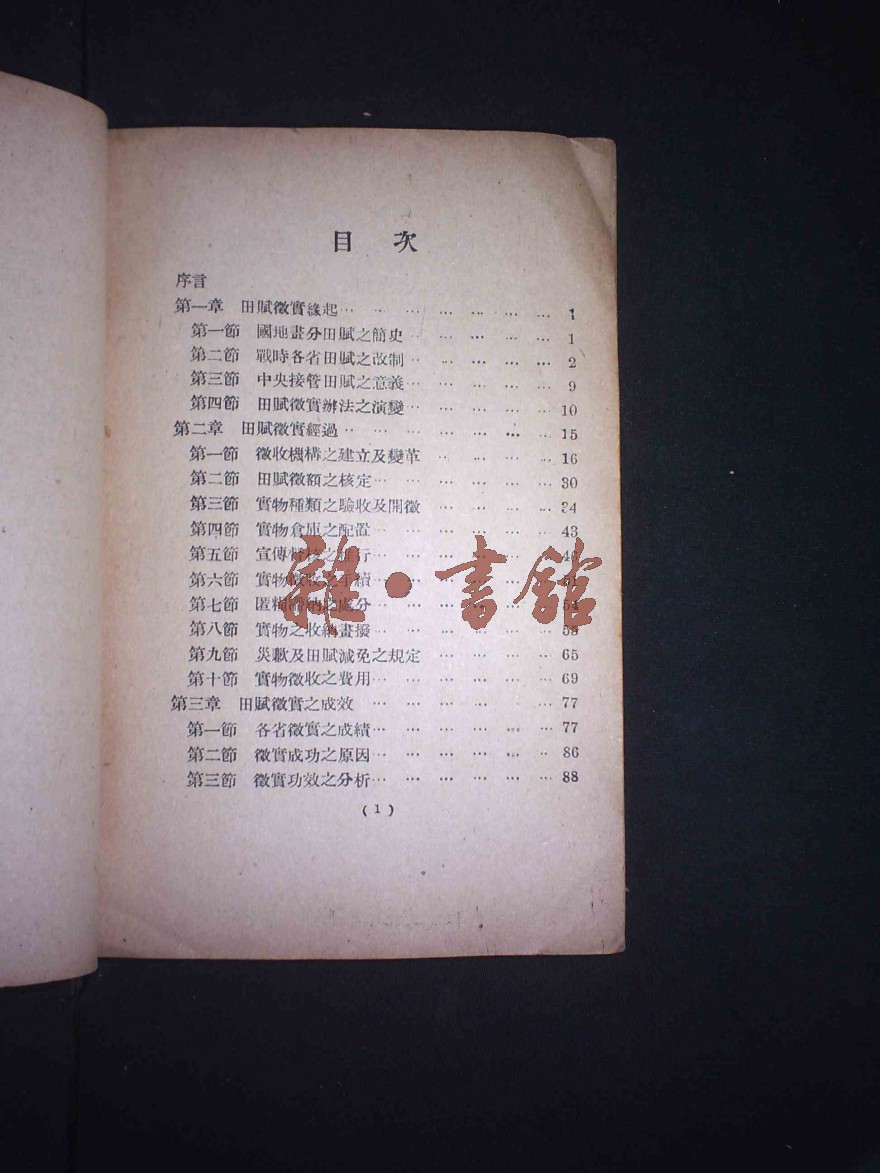 目 次
序言
第一章 田賦徵實緣起 … … … … … … … 1
第一節 國地畫分田賦之簡史 … … … … … 1
第二節 戰時各省田賦之改制 … … … … … 2
第三節 中央接管田賦之意義 … … … … … 9
第四節 田賦徵實辦法之演變 … … … … … 10
第二章 田賦徵實經過 … … … … … … … 15
第一節 徵收機構之建立及變革 … … … … 16
第二節 田賦徵額之核定 … … … … … … 30
第三節 實物種類之驗收及開徵 … … … … 34
第四節 實物倉庫之配置 … … … … … … 43
第五節 宣傳 之推行 … … … … … …
第六節 實物徵收之手續 … … … … … … 51
第七節 匿糧滯納之處分 … … … … … … 54
第八節 實物之收納畫撥 … … … … … … 58
第九節 災歉及田賦減免之規定 … … … … 65
第十節 實物徵收之費用 … … … … … … 69
第三章 田賦徵實之成效 … … … … … … 77
第一節 各省徵實之成績 … … … … … … 77
第二節 徵實成功之原因 … … … … … … 86
第三節 徵實功效之分析 … … … … … … 88
( 1 )
雜·書館